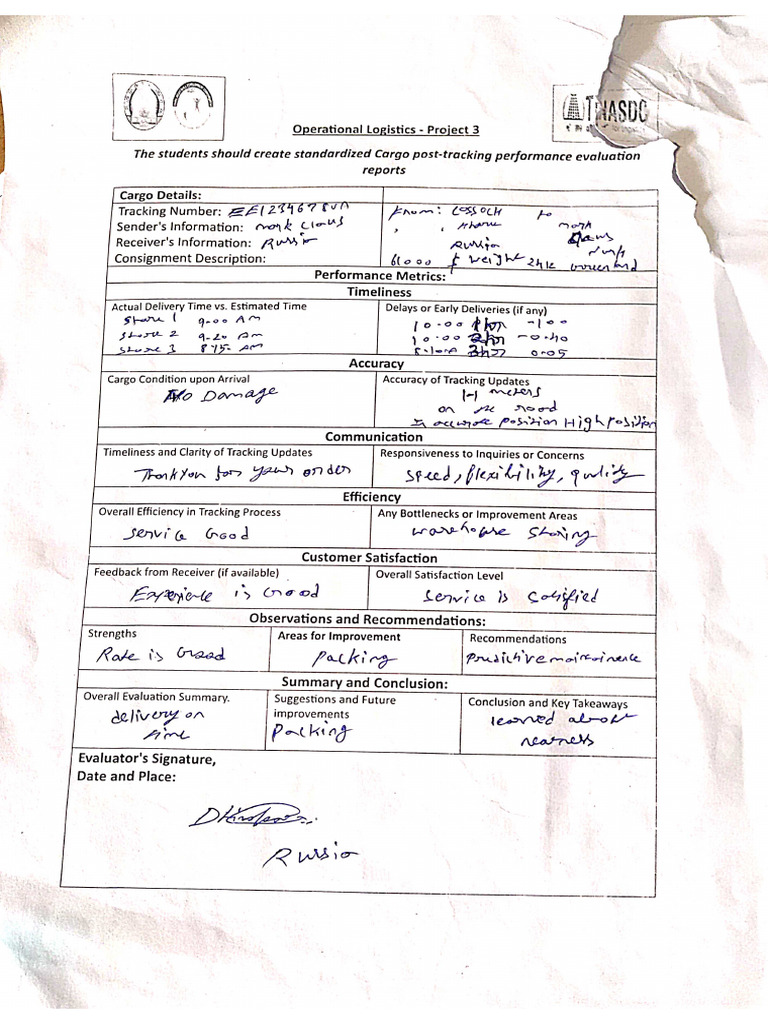 TNASDC
Operational Logistics - Project 3
The students should create standardized Cargo post-tracking performance evaluation
reports
Cargo Details:
Tracking Number:
Sender's Information: mark Claus
Receiver's Information: Russia
Consignment Description:
From: to
Share mark
Russia
61000 & weight 24k
Performance Metrics:
Timeliness
Actual Delivery Time vs. Estimated Time
Share 1 9.00 AM
Share 2 9-20 AM
Share 3 845- AM
Delays or Early Deliveries (if any)
10.00 -100
10.00 -0.40
0.05
Accuracy
Cargo Condition upon Arrival
No Damage
Accuracy of Tracking Updates
1-1 meters
on the road
accurate position High position
Communication
Timeliness and Clarity of Tracking Updates
Thankyou for your order
Responsiveness to Inquiries or Concerns
Speed, flexibility, quality
Efficiency
Overall Efficiency in Tracking Process
Service Good
Any Bottlenecks or Improvement Areas
warehouse Sharing
Customer Satisfaction
Feedback from Receiver (if available)
Experience is Good
Overall Satisfaction Level
Service is Satisfied
Observations and Recommendations:
Strengths
Rate is Good
Areas for Improvement
Packing
Recommendations
Predictive maintainence
Summary and Conclusion:
Overall Evaluation Summary.
delivery on
time
Suggestions and Future
improvements
Packing
Conclusion and Key Takeaways
learned about
nearness
Evaluator's Signature,
Date and Place:
Russia